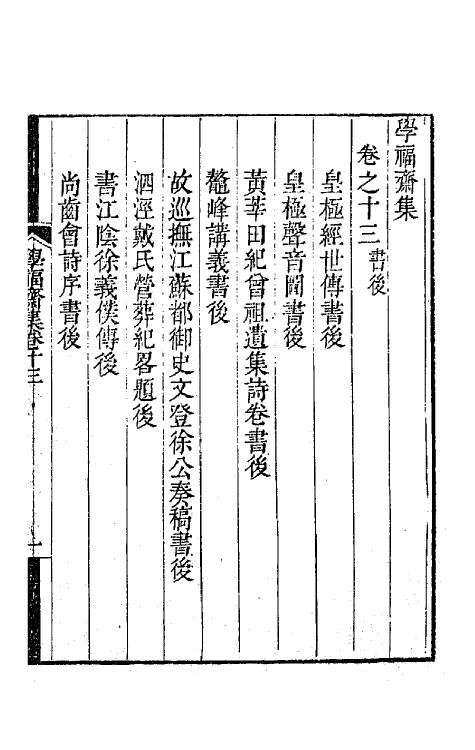 學福齋集
卷之十三 書後
皇極經世傳書後
皇極聲音圖書後
黃莘田紀曾祖遺集詩卷書後
鼇峰講義書後
故巡撫江蘇都御史文登徐公奏稿書後
泗涇戴氏營葬紀畧題後
書江陰徐義僕傳後
尚齒會詩序書後
學福齋集卷十三
一